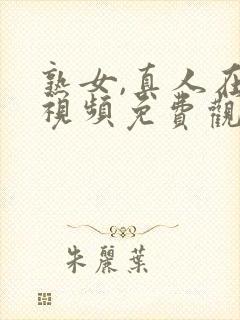 熟女,真人在
視頻免費觀
朱麗葉